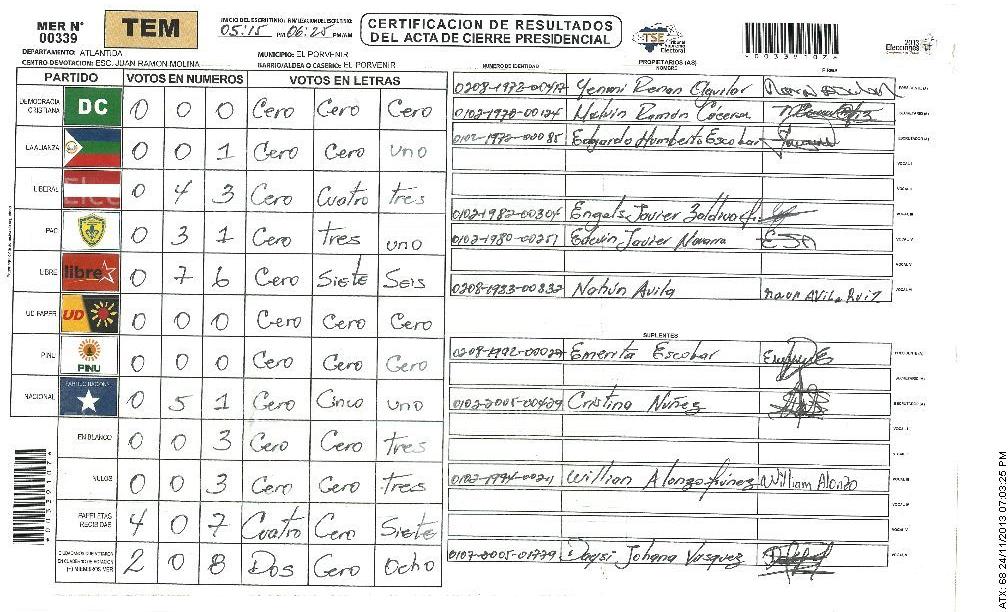 MER N° 00339
TEM
INICIO DEL ESCRUTINIO: FINALIZACION DEL ESCRUTINIO:
05:15 PM 06:25 PM/AM
CERTIFICACION DE RESULTADOS
DEL ACTA DE CIERRE PRESIDENCIAL
TSE Tribunal Supremo Electoral
*0033910?*
2013 Elecciones
DEPARTAMENTO: ATLANTIDA
MUNICIPIO: EL PORVENIR
CENTRO DEVOTACION: ESC. JUAN RAMON MOLINA
BARRIO/ALDEA O CASERIO: EL PORVENIR
PARTIDO VOTOS EN NUMEROS VOTOS EN LETRAS
DEMOCRACIA CRISTIANA DC 0 0 0 Cero Cero Cero
LA ALIANZA 0 0 1 Cero Cero uno
LIBERAL 0 4 3 Cero Cuatro tres
PAC 0 3 1 Cero tres uno
LIBRE libre 0 7 6 Cero Siete Seis
UD FAPER UD 0 0 0 Cero Cero Cero
PINU PINU 0 0 0 Cero Cero Cero
NACIONAL PARTIDO NACIONAL 0 5 1 Cero Cinco uno
EN BLANCO 0 0 3 Cero Cero tres
NULOS 0 0 3 Cero Cero tres
PAPELETAS RECIBIDAS 4 0 7 Cuatro Cero Siete
CIUDADANOS QUE VOTARON EN CUADERNO DE VOTACION (+) MIEMBROS MER 2 0 8 Dos Cero Ocho
NUMERO DE IDENTIDAD PROPIETARIOS (AS) NOMBRE FIRMA
Yenmi Renan Aguilar
0102-1970-00124 Melvin Ramón Cáceres
0102-1972-00085 Edgardo Humberto Escobar
0102-1982-00304 Engels Javier Zaldivar
0102-1980-00251 Edwin Javier Navarra
0208-1983-00832 Nahún Avila naun AVila Ruiz
SUPLENTES
0208-1992-00027 Emerita Escobar
0102-2005-00429 Cristina Nuñez
Willian Alonzo Nuñez William Alonzo
0107-2005-01779 Daysi Johana Vasquez
ATX: 68 24/11/2013 07:03:25 PM